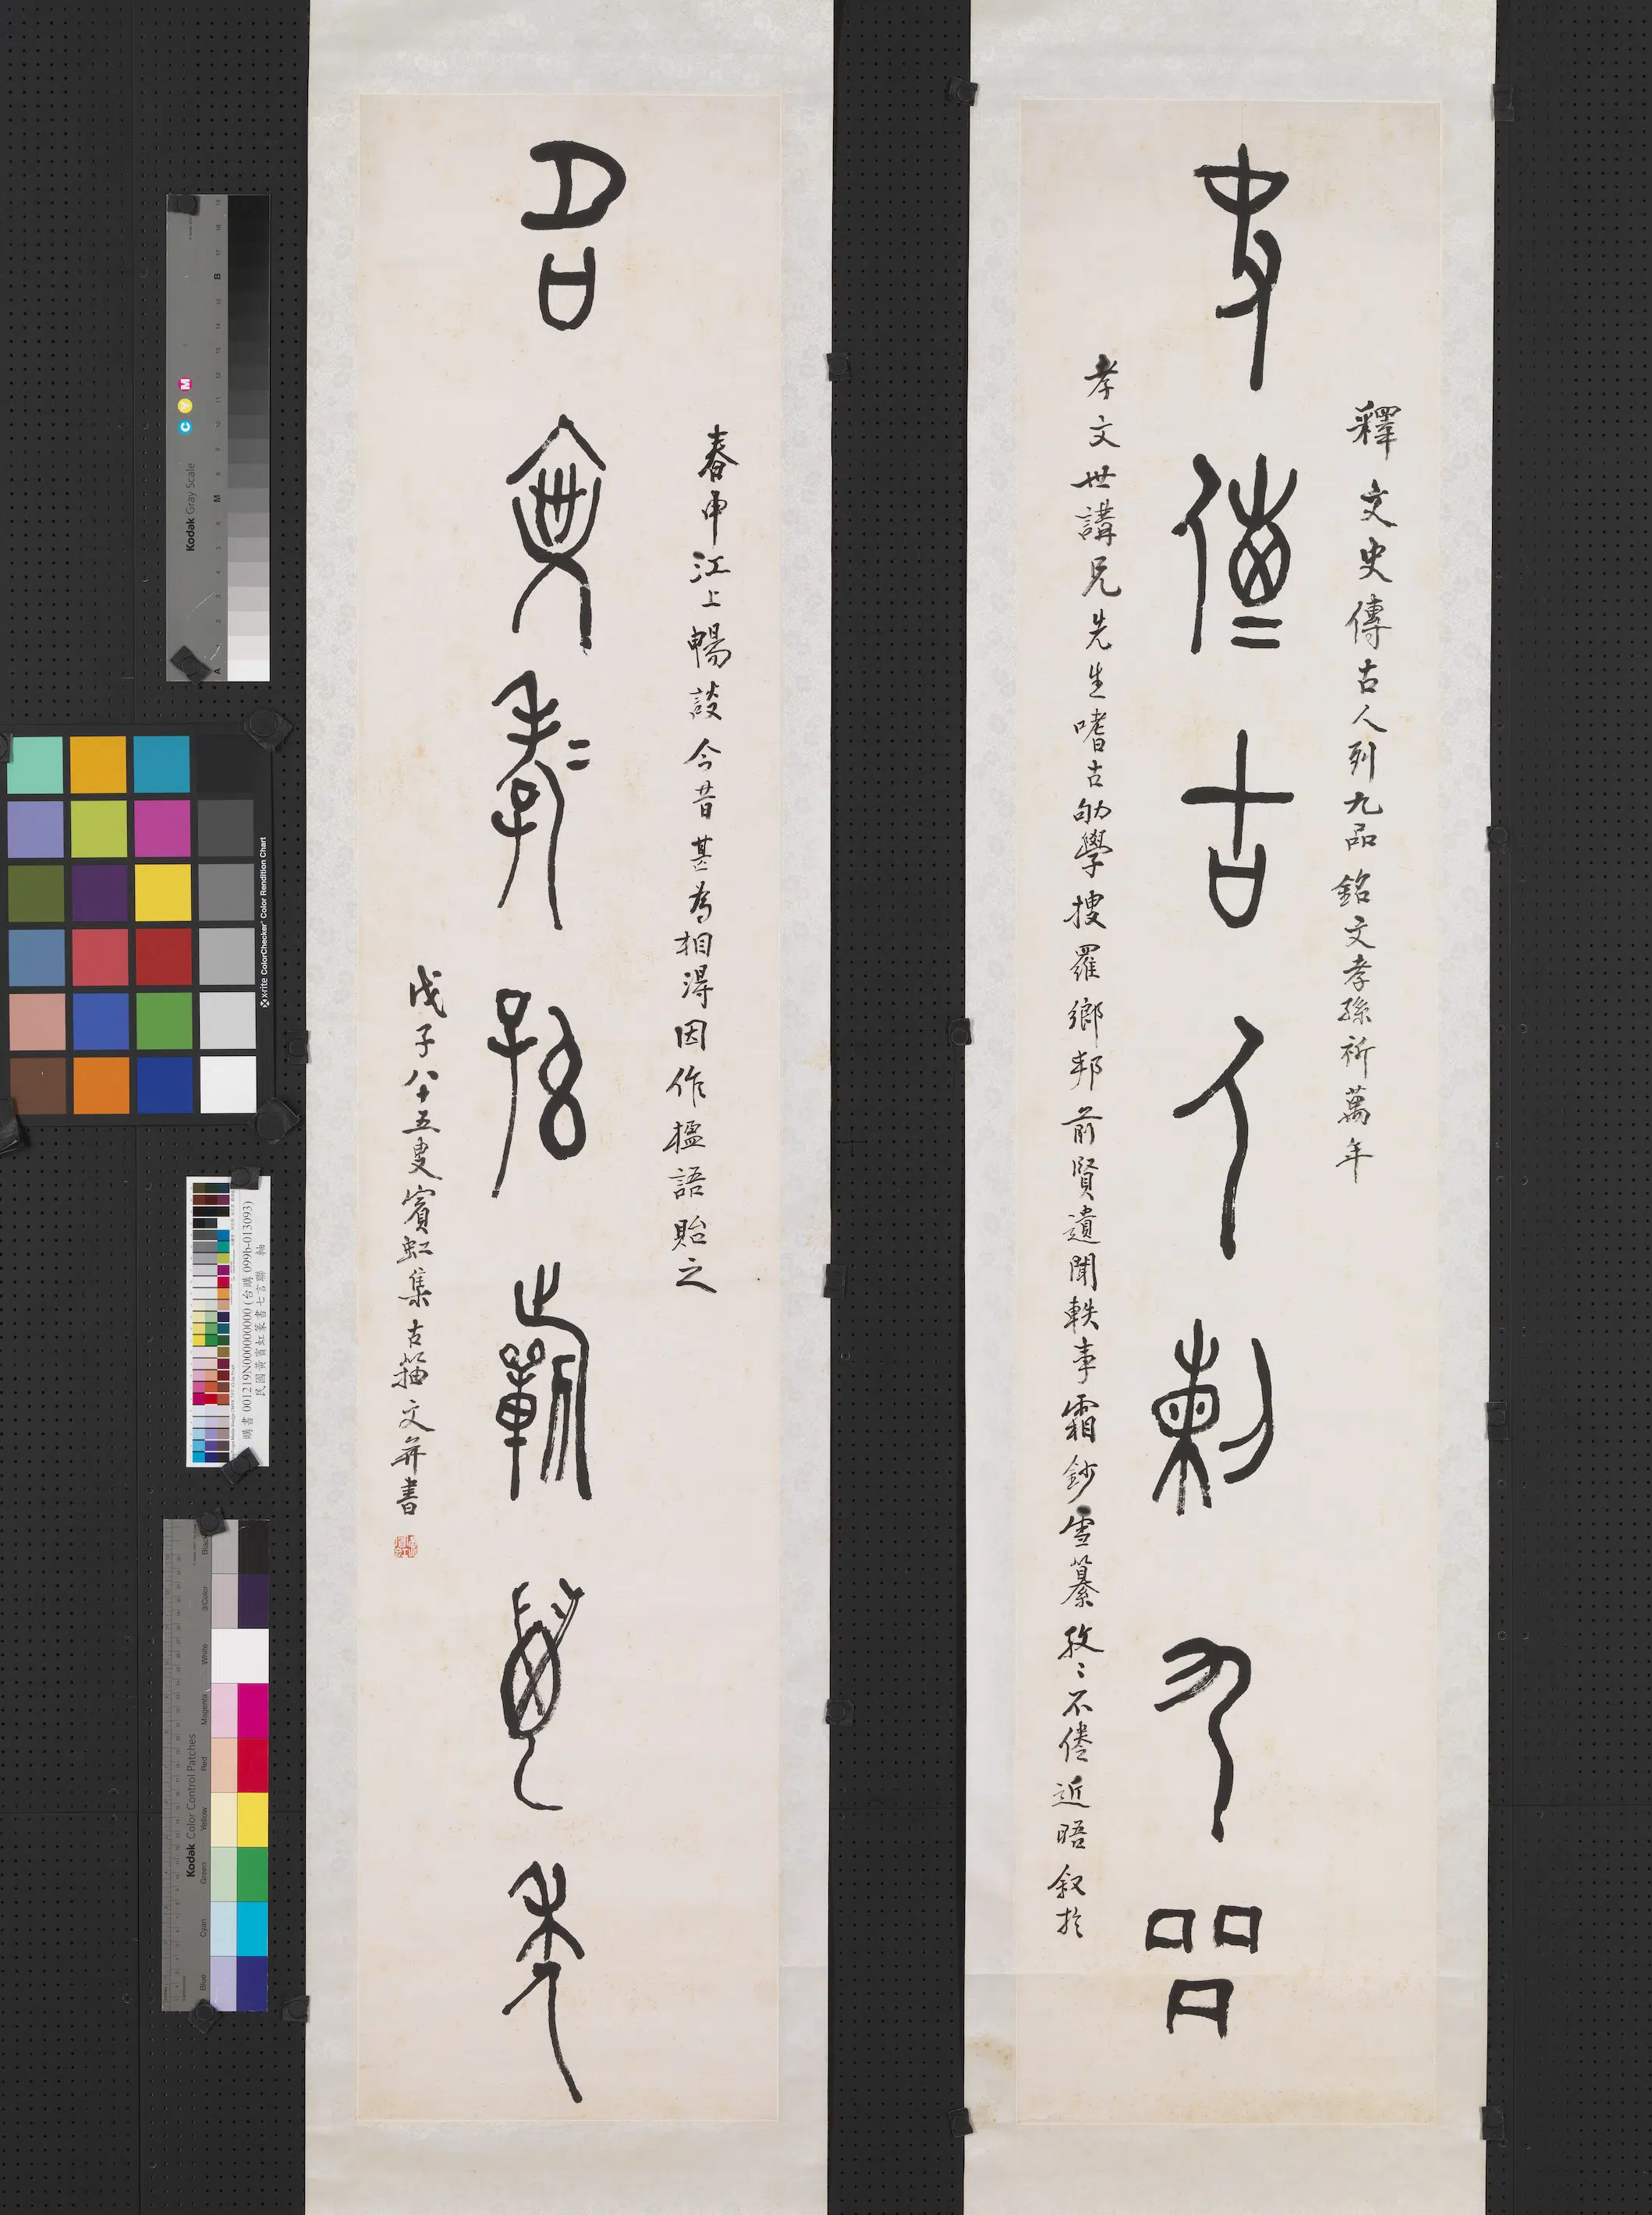 釋文史傳古人列九品銘文孝孫祈萬年
史傳古人列九品
孝文世講兄先生嗜古劬學搜羅鄉邦前賢遺聞軼事霜鈔雪纂孜〻不倦近晤叙於
春申江上暢談今昔甚為相得因作楹語貽之
銘文孝孫祈萬年
戊子八十五叟賓虹集古籀文并書
Kodak Gray Scale
C Y M
A
M
B
x-rite ColorChecker Color Rendition Chart
民國黃賓虹篆書七言聯 軸
Kodak Color Control Patches
Blue
Cyan
Green
Yellow
Red
Magenta
White
3/Color
Black